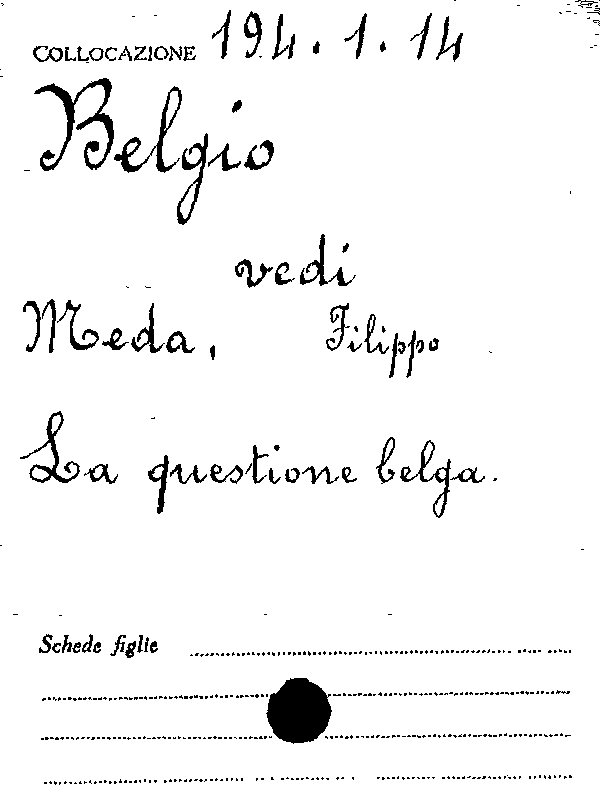 COLLOCAZIONE 194.1.14
Belgio
vedi
Meda, Filippo
La questione belga.
Schede figlie